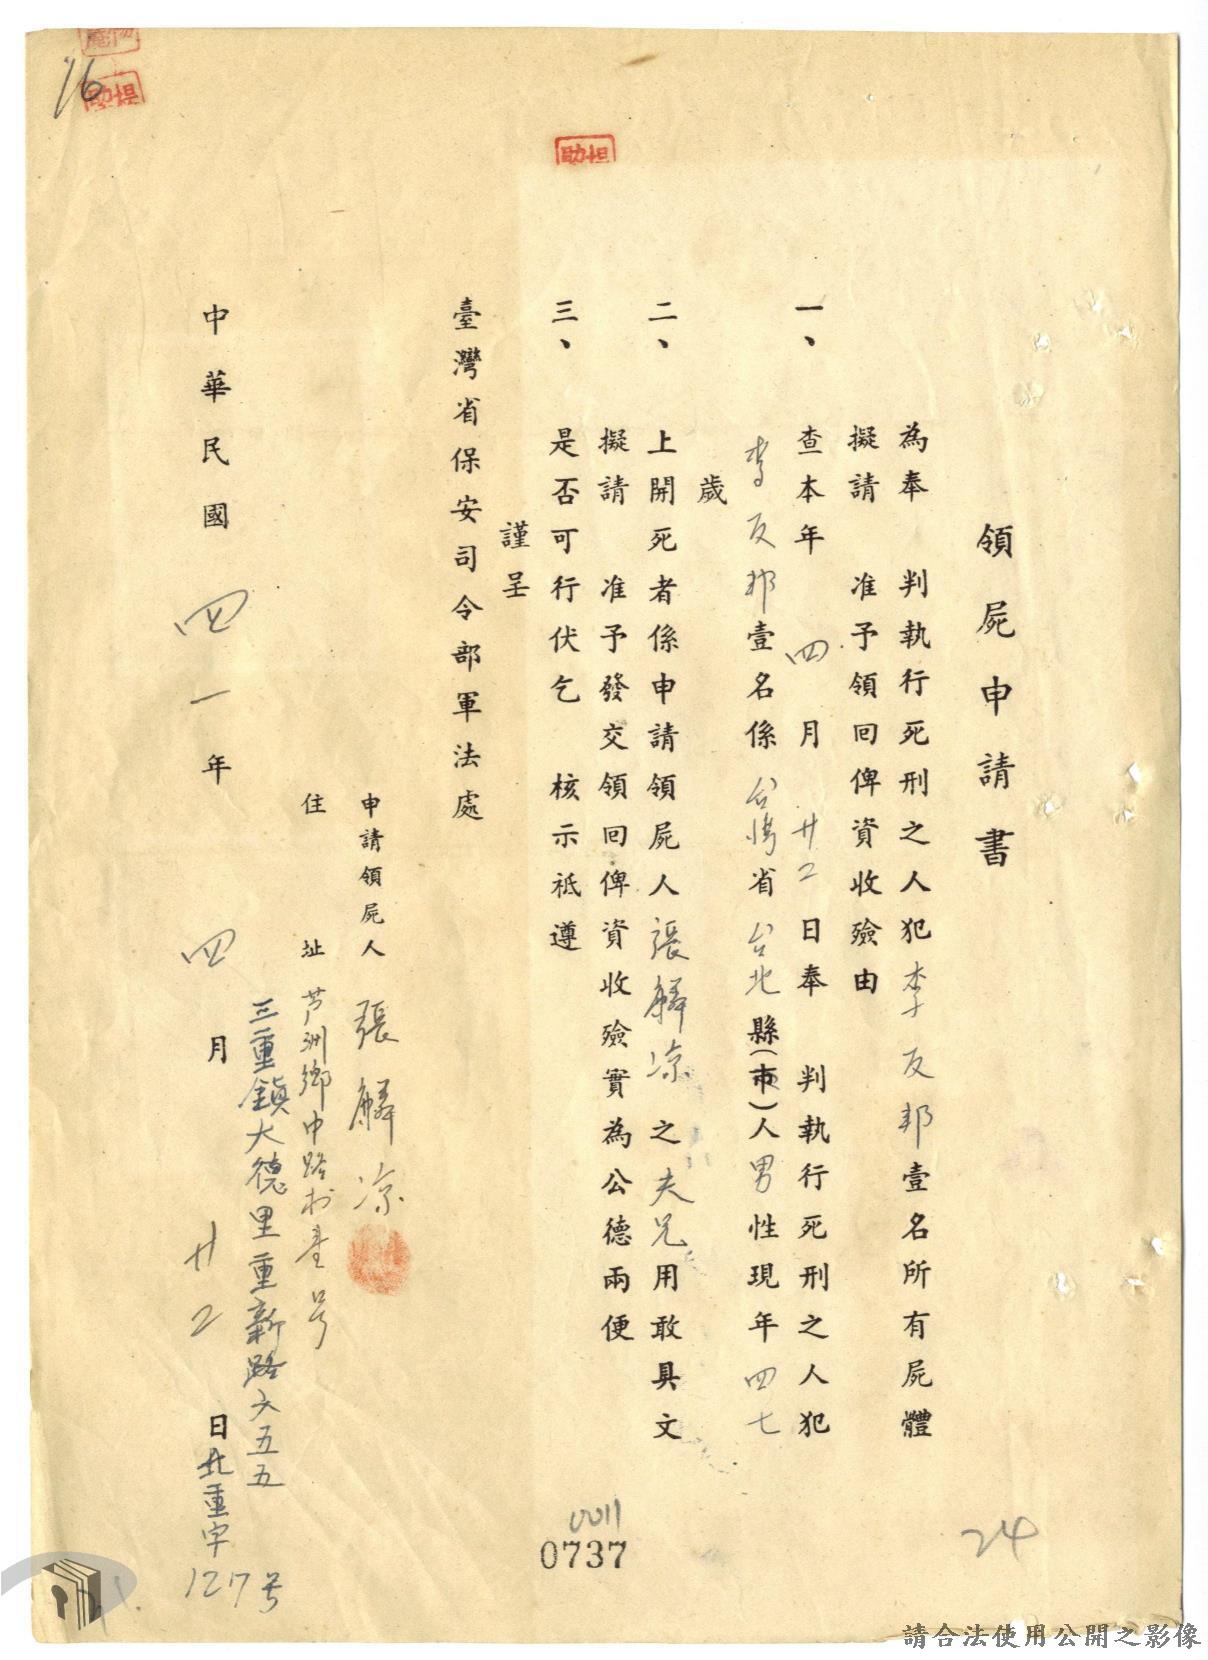 領屍申請書
為奉　判執行死刑之人犯李友邦壹名所有屍體
擬請　准予領回俾資收殮由
一、查本年四月廿二日奉　判執行死刑之人犯
李友邦壹名係台灣省台北縣(市)人男性現年四七
歲
二、上開死者係申請領屍人張麟凉之夫兄用敢具文
擬請　准予發交領回俾資收殮實為公德兩便
三、是否可行伏乞　核示祗遵
謹呈
臺灣省保安司令部軍法處
申請領屍人張麟凉
住址芦洲鄉中路村壹号
三重鎮大德里重新路六五五
中華民國四一年四月廿二日
北重字127号
76
24
0011
0737
請合法使用公開之影像